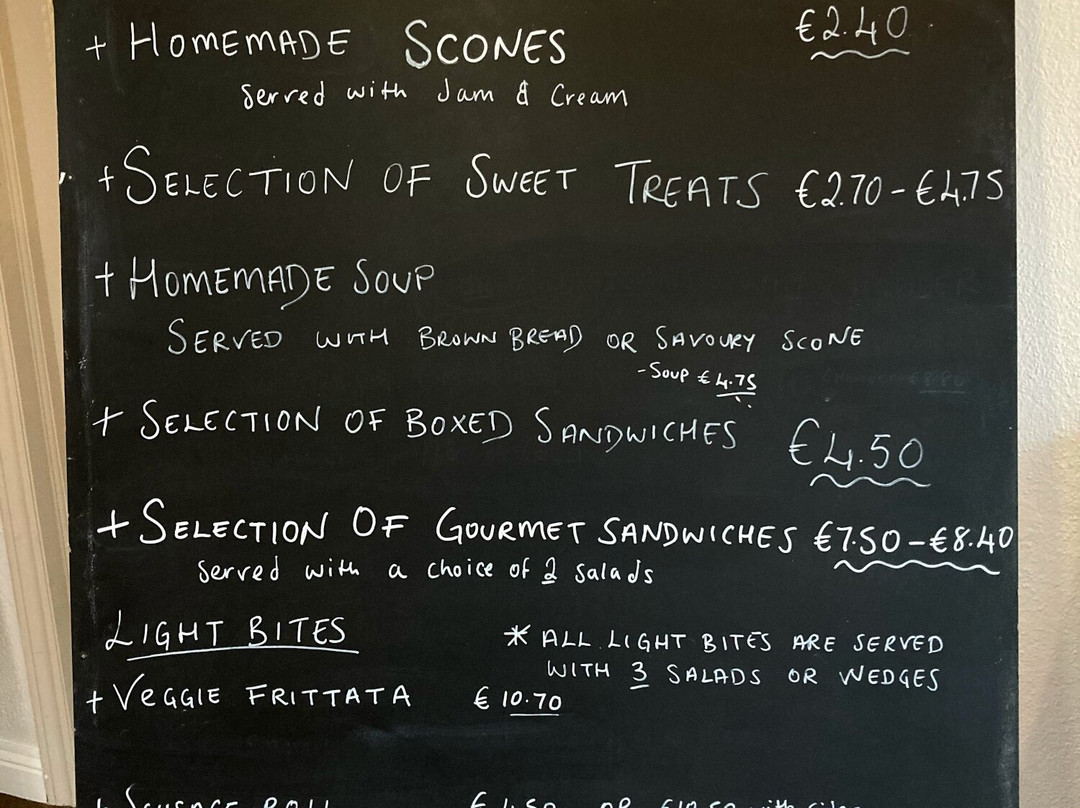 + HOMEMADE SCONES €2.40
Served with Jam & Cream
+ SELECTION OF SWEET TREATS €2.70 - €4.75
+ HOMEMADE SOUP
SERVED WITH BROWN BREAD OR SAVOURY SCONE
- SOUP €4.75
+ SELECTION OF BOXED SANDWICHES €4.50
+ SELECTION OF GOURMET SANDWICHES €7.50 - €8.40
Served with a choice of 2 Salads
LIGHT BITES
* ALL LIGHT BITES ARE SERVED
WITH 3 SALADS OR WEDGES
+ VEGGIE FRITTATA €10.70
+ SAUSAGE ROLL OR